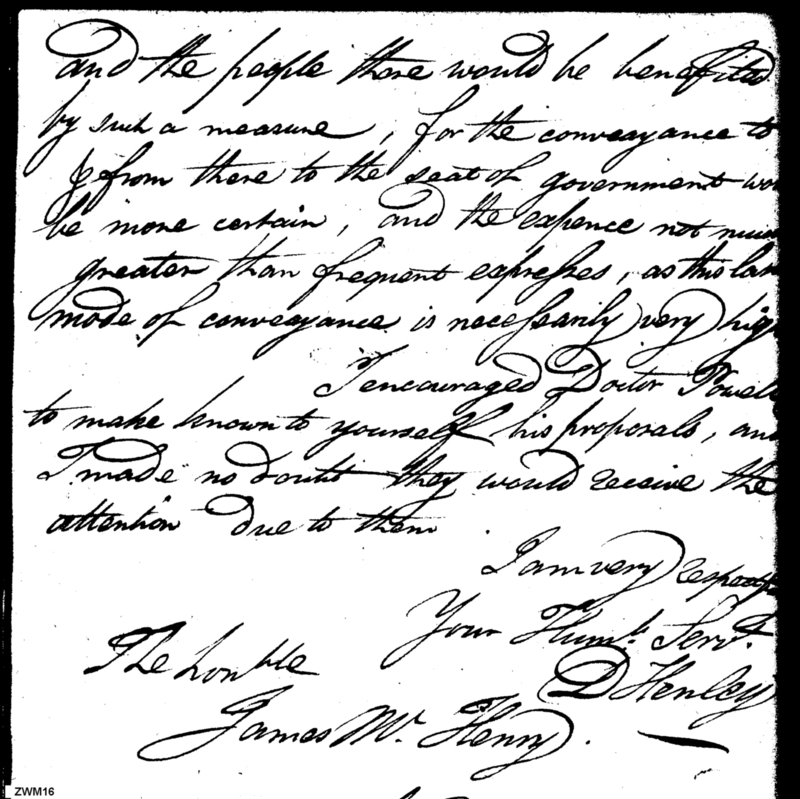 and the people there would be benefitted
by such a measure, for the conveayance to
& from there to the seat of government wou
be more certain, and the expence not much
greater than frequent expresses, as this last
mode of conveayance is necessarily very high
I encouraged Doctor Powell
to make known to yourself his proposals, and
I made no doubt they would receive the
attention due to them.
I am very respectf
Your Humb. Serv.t
D Henley
The honble
James Mc. Henry.
ZWM16